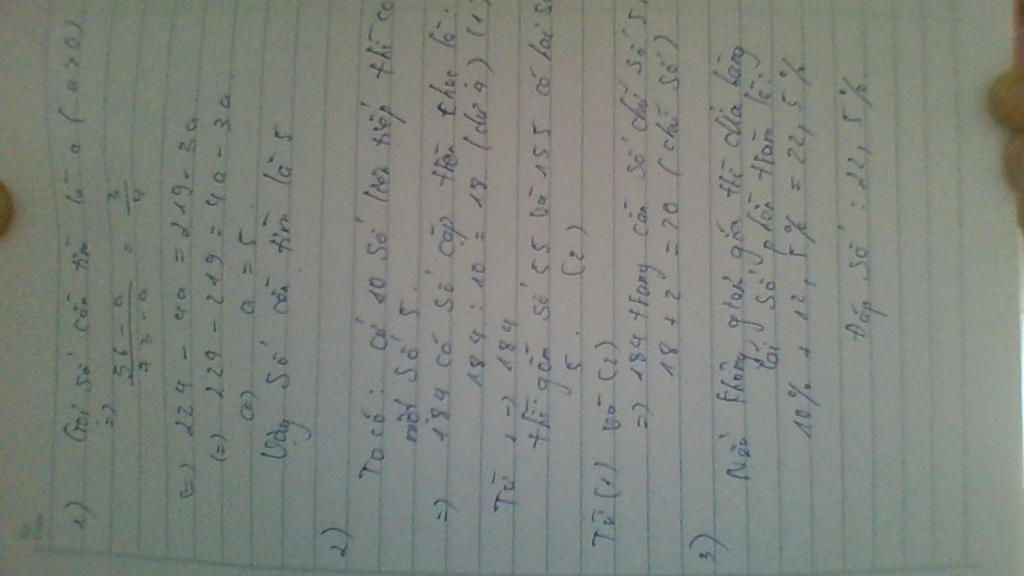 1) Gọi số cần tìm là a ( a > 0 )
=> 56 - a / 73 - a = 3 / 4
(=) 224 - 4a = 219 - 3a
(=) 224 - 219 = 4a - 3a
(=) a = 5
Vậy số cần tìm là 5
2)
Ta có : cứ 10 số liên tiếp thì có
một số 5
=> 184 có số cặp
184 : 10 = 18 (dư 4) (1)
Từ 1 -> 184
thì gồm số 55 và 155 có hai số
5 . (2)
Từ (1) và (2)
=> 184 trang cần số chữ số 5
18 + 2 = 20 ( chữ số )
3)
Nếu không giảm giá thì cửa hàng
lãi số phần trăm là
10% + 12,5% = 22,5%
Đáp số : 22,5%.